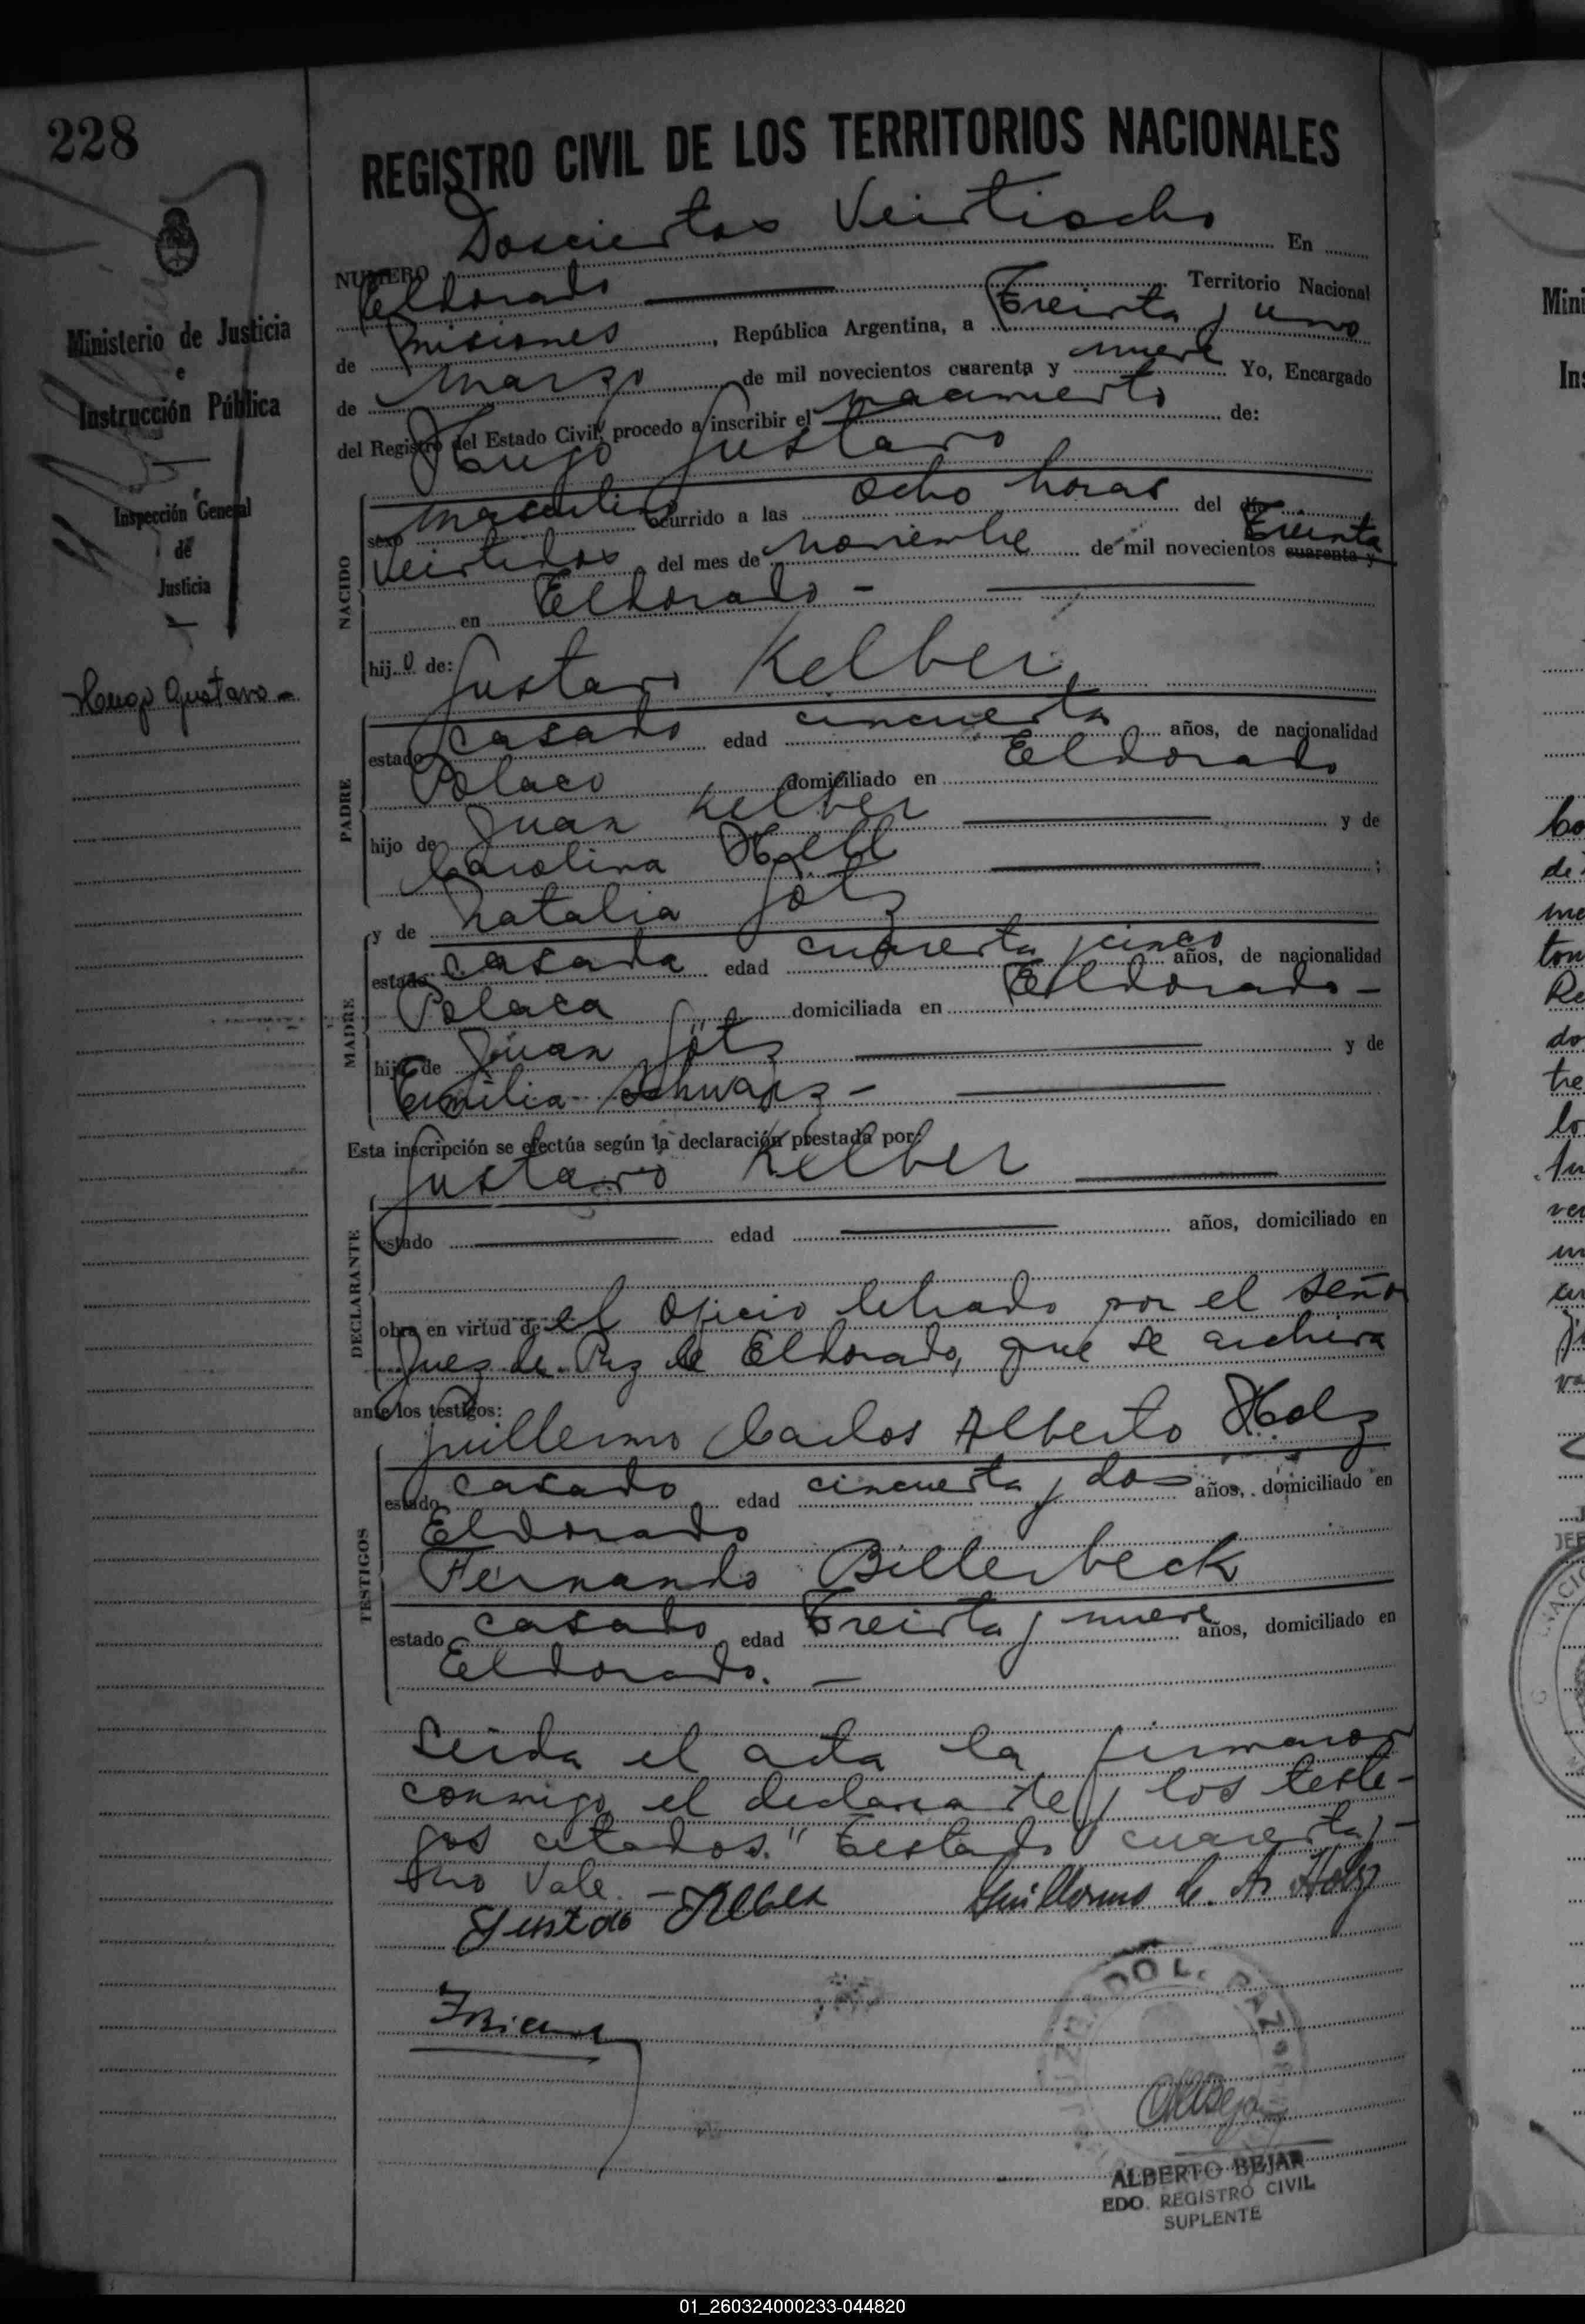 228
REGISTRO CIVIL DE LOS TERRITORIOS NACIONALES
NUMERO Doscientos Veintiocho En
Eldorado Territorio Nacional
de Misiones, República Argentina, a Treinta y uno
de Marzo de mil novecientos cuarenta y nueve Yo, Encargado
del Registro del Estado Civil, procedo a inscribir el nacimiento de:
Hugo Gustavo
Ministerio de Justicia
e
Instrucción Pública
Inspección General
de
Justicia
Hugo Gustavo
NACIDO
sexo masculino ocurrido a las ocho horas del día
Veintidos del mes de Noviembre de mil novecientos cuarenta y Treinta
en Eldorado -
hijo de: Gustavo Kelber
PADRE
estado casado edad cincuenta años, de nacionalidad
Polaco domiciliado en Eldorado
hijo de Juan Kelber y de
Carolina Hell ;
y de Natalia Götz
MADRE
estado casada edad cuarenta y cinco años, de nacionalidad
Polaca domiciliada en Eldorado -
hija de Juan Götz y de
Emilia Schwarz -
Esta inscripción se efectúa según la declaración prestada por:
Gustavo Kelber
DECLARANTE
estado edad años, domiciliado en
obra en virtud de el oficio librado por el señor
Juez de Paz de Eldorado, que se archiva
ante los testigos:
Guillermo Carlos Alberto Holz
TESTIGOS
estado casado edad cincuenta y dos años, domiciliado en
Eldorado
Fernando Billerbeck
estado casado edad Treinta y nueve años, domiciliado en
Eldorado. -
Leida el acta la firmaron
conmigo el declarante y los testi-
gos citados. "Testado cuarenta y -
No Vale. -
Gustav Kelber Guillermo C. A. Holz
ALBERTO BEJAR
EDO. REGISTRO CIVIL
SUPLENTE
01_260324000233-044820